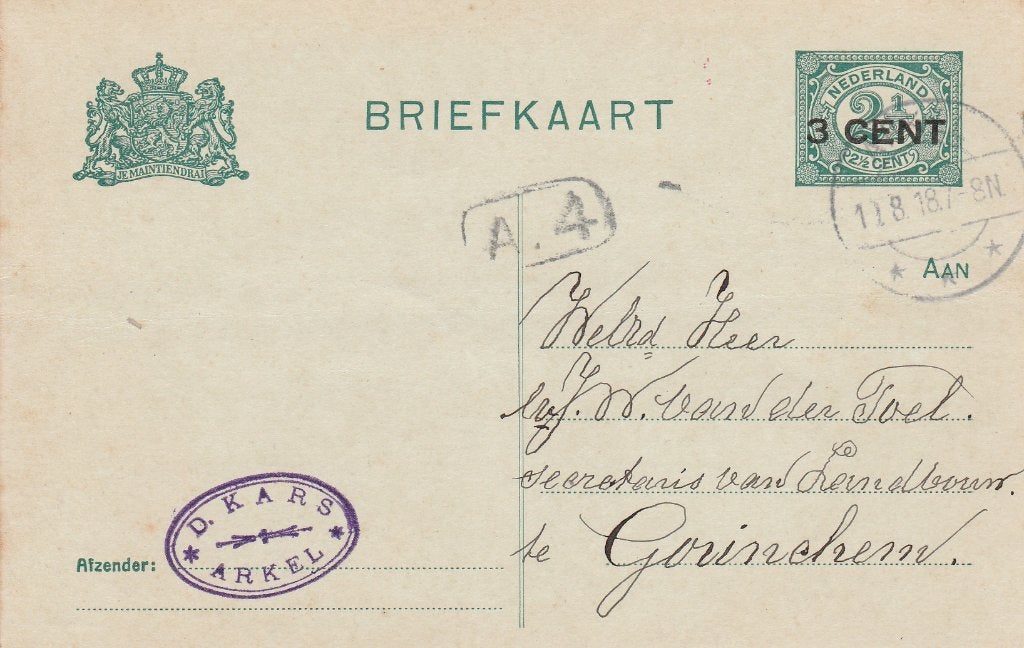 JE MAINTIENDRAI
BRIEFKAART
NEDERLAND
2½
3 CENT
2½ CENT
8.18.7-8N.
A.4
AAN
Welrd Heer
J. W. van der Poel.
secretaris van Landbouw.
te Gorinchem.
D. KARS
ARKEL
Afzender: